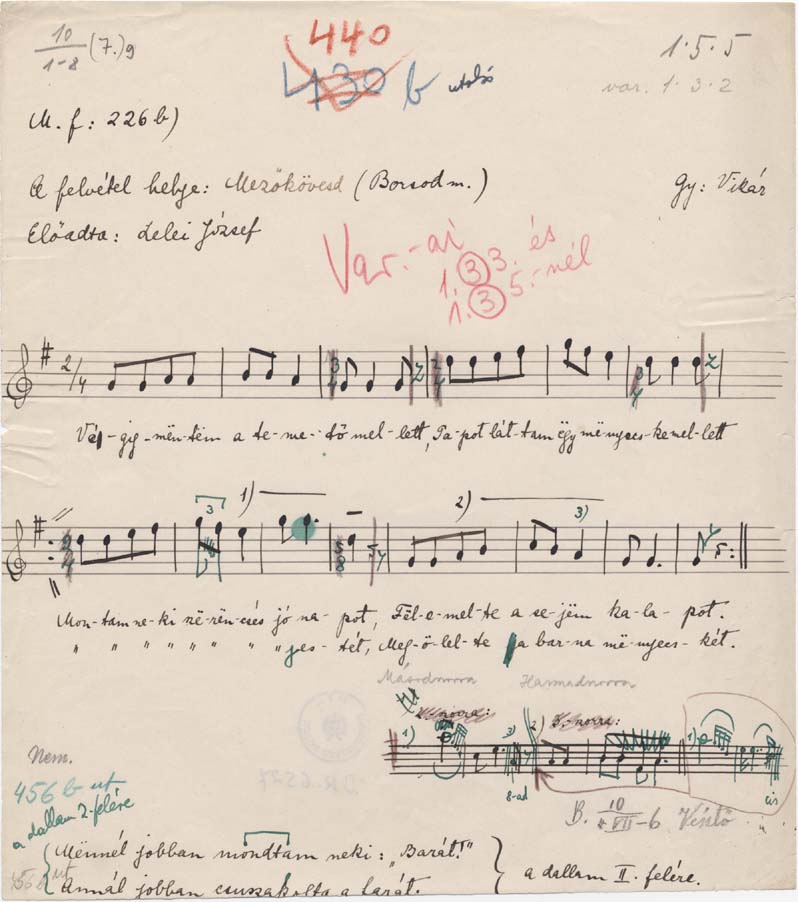 10/1-8 (7.)g
440
430 b utolsó
1·5·5
var. 1·3·2
M. f: 226 b)
A felvétel helye: Mezőkövesd (Borsod m.)
Gy: Vikár
Előadta: Lelei József
Var.-ai
1. 3 3. és
1. 3 5.-nél
2/4
Vé-gig-mën-tem a te-me-tő mel-lett, Pa-pot lát-tam ëgy më-nyecs-ke mel-lett
3 1) 2) 3)
Mon-tam ne-ki szë-rën-csés jó na-pot, Fël-e-mel-te a se-jëm ka-la-pot.
" " " " " " " jes-tét, Meg-ö-lel-te a bar-na më-nyecs-két.
Másodnorra Harmadnorra
1) 3) 2) 3.-norra: 1)
8-ad
cis
Nem.
B. 10/VII-6 Vésztő
456 b ut
a dallam 2-felére
Mennél jobban mondtam neki: "Barát!"
Annál jobban csuszakolta a farát.
a dallam II. felére.